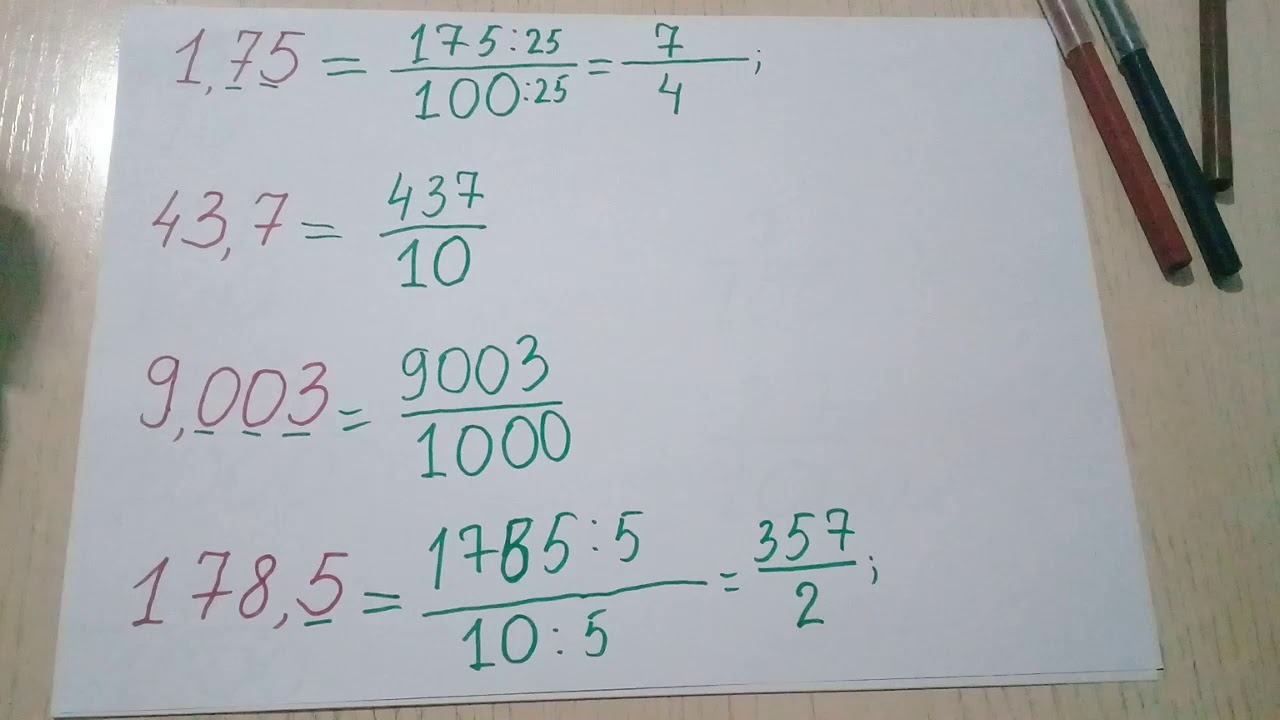 1,75 = 175:25/100:25 = 7/4;
43,7 = 437/10
9,003 = 9003/1000
178,5 = 1785:5/10:5 = 357/2;